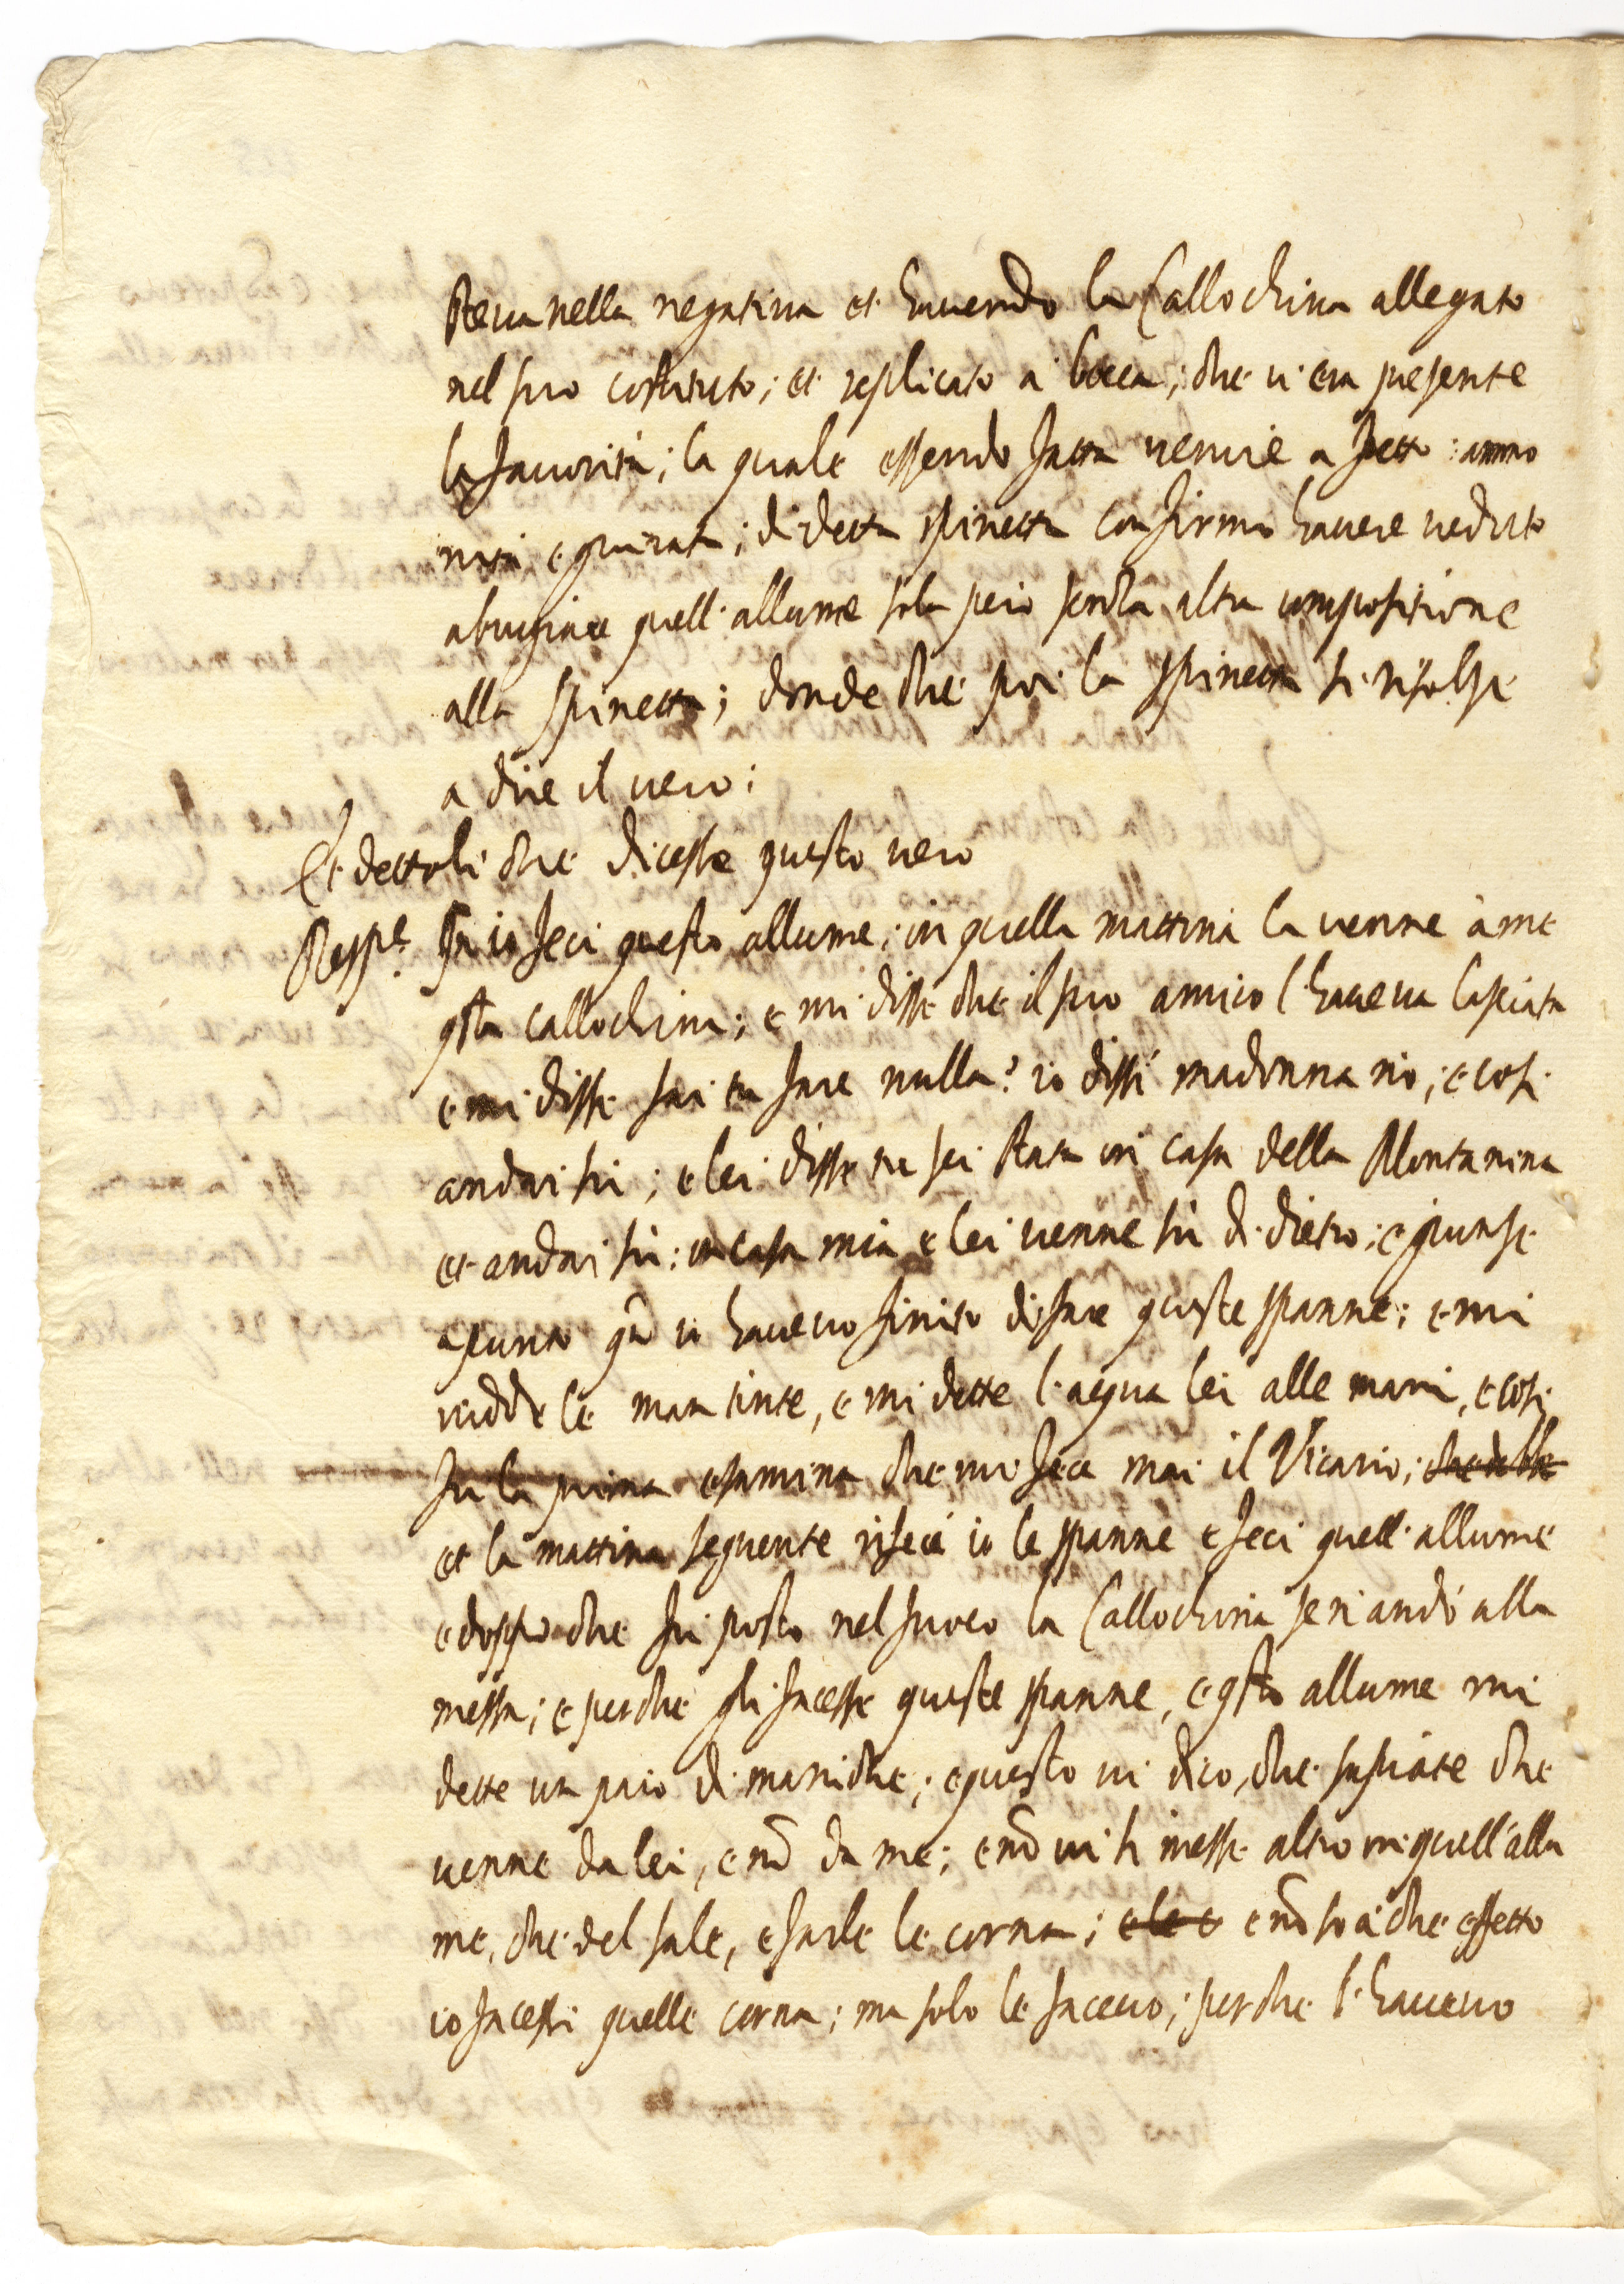 steva nella negativa et havendo la Callochina allegato
nel suo costituto; et replicato a bocca; che v'era presente
la favorita; la quale essendo fatta venire a petto: ammo
nita e giurata; di detta spinetta confirmo havere veduto
abrugiare quell'allume solo pero senza altra compositione
alla spinetta; donde che poi la spinetta si risolse
a dire il vero:
Et dettoli che dicesse questo vero
Respe. Fu io feci questo allume; in quella mattina la venne à me
qsta callochina; e mi disse che il suo amico l'haveva lasciata
e mi disse sai tu fare nulla? io dissi madonna nò; e cosi
andai sù; e lei disse tu sei stata in casa della Montanina
et andai sù: in casa mia e lei venne sù di dietro; e giunse
apunto qdo io havevo finito di fare queste spanne; e mi
vidde le man tinte, e mi dette l'acqua lei alle mani, e cosi
fu la prima esamina che mi fece mai il Vicario;
et la mattina seguente rifeci io le spanne e feci quell'allume
e doppo che fu posto nel fuoco la Callochina se n'andò alla
messa; e perche gli facesse queste spanne, e qsto allume mi
dette un paio di maniche; e questo vi dico, che sapiate che
venne da lei, e nō da me; e nō vi si messe altro in quell'allu
me, che del sale, e farle le corna; e le c e nō so à che effetto
io facessi quelle corna; ma solo le facevo; perche l'havevo